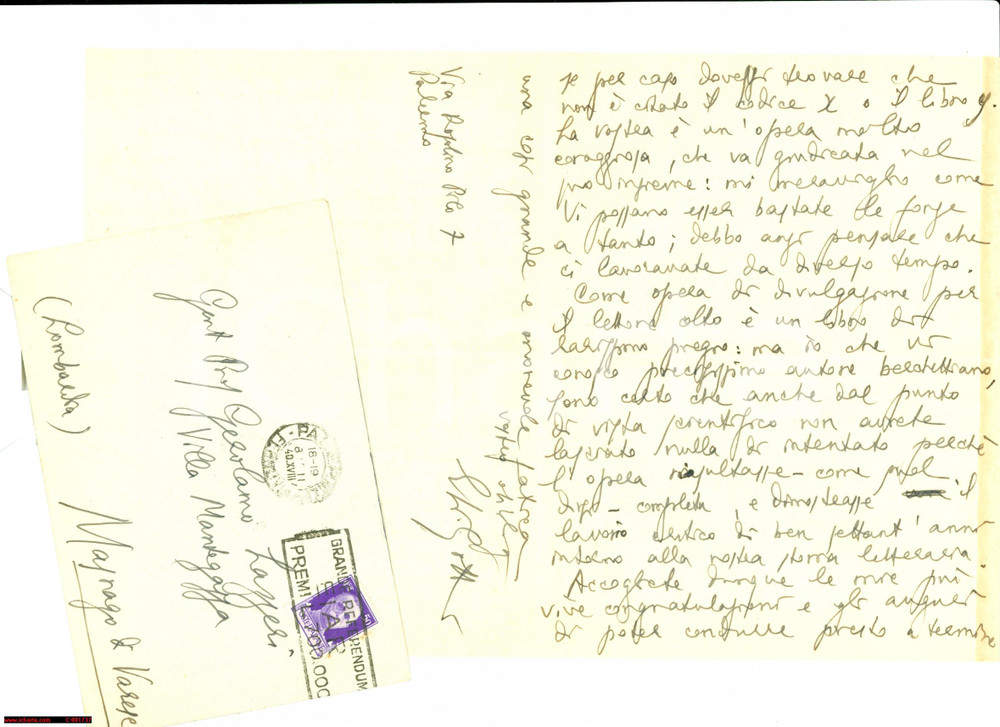 se per caso dovessi trovare che
non è citato il codice X o il libro y.
La vostra è un'opera molto
coraggiosa, che va giudicata nel
suo insieme: mi meraviglio come
Vi possano esser bastate le forze
a tanto; debbo anzi pensare che
ci lavoravate da diverso tempo.
Come opera di divulgazione per
il lettore colto è un libro di
rarissimo pregio: ma io che vi
conosco precisissimo autore berchettiano,
sono certo che anche dal punto
di vista scientifico non avrete
lasciato nulla di intentato perché
l'opera risultasse - come suol
dirsi - completa, e dimostrasse il
lavorio critico di ben settant'anni
intorno alla nostra storia letteraria.
Accogliete dunque le mie più
vive congratulazioni e gli auguri
di poter condurre presto a termine
una così grande e onorevole fatica
vostro
Via Rosolino Pilo 7
Palermo
Gent Prof Gerolamo Lazzeri
Villa Mantegazza
Magnago di Varese
(Lombardia)
18-19
40.XVIII
GRAN
REFERENDUM
PREMI
000
50
www.icharta.com